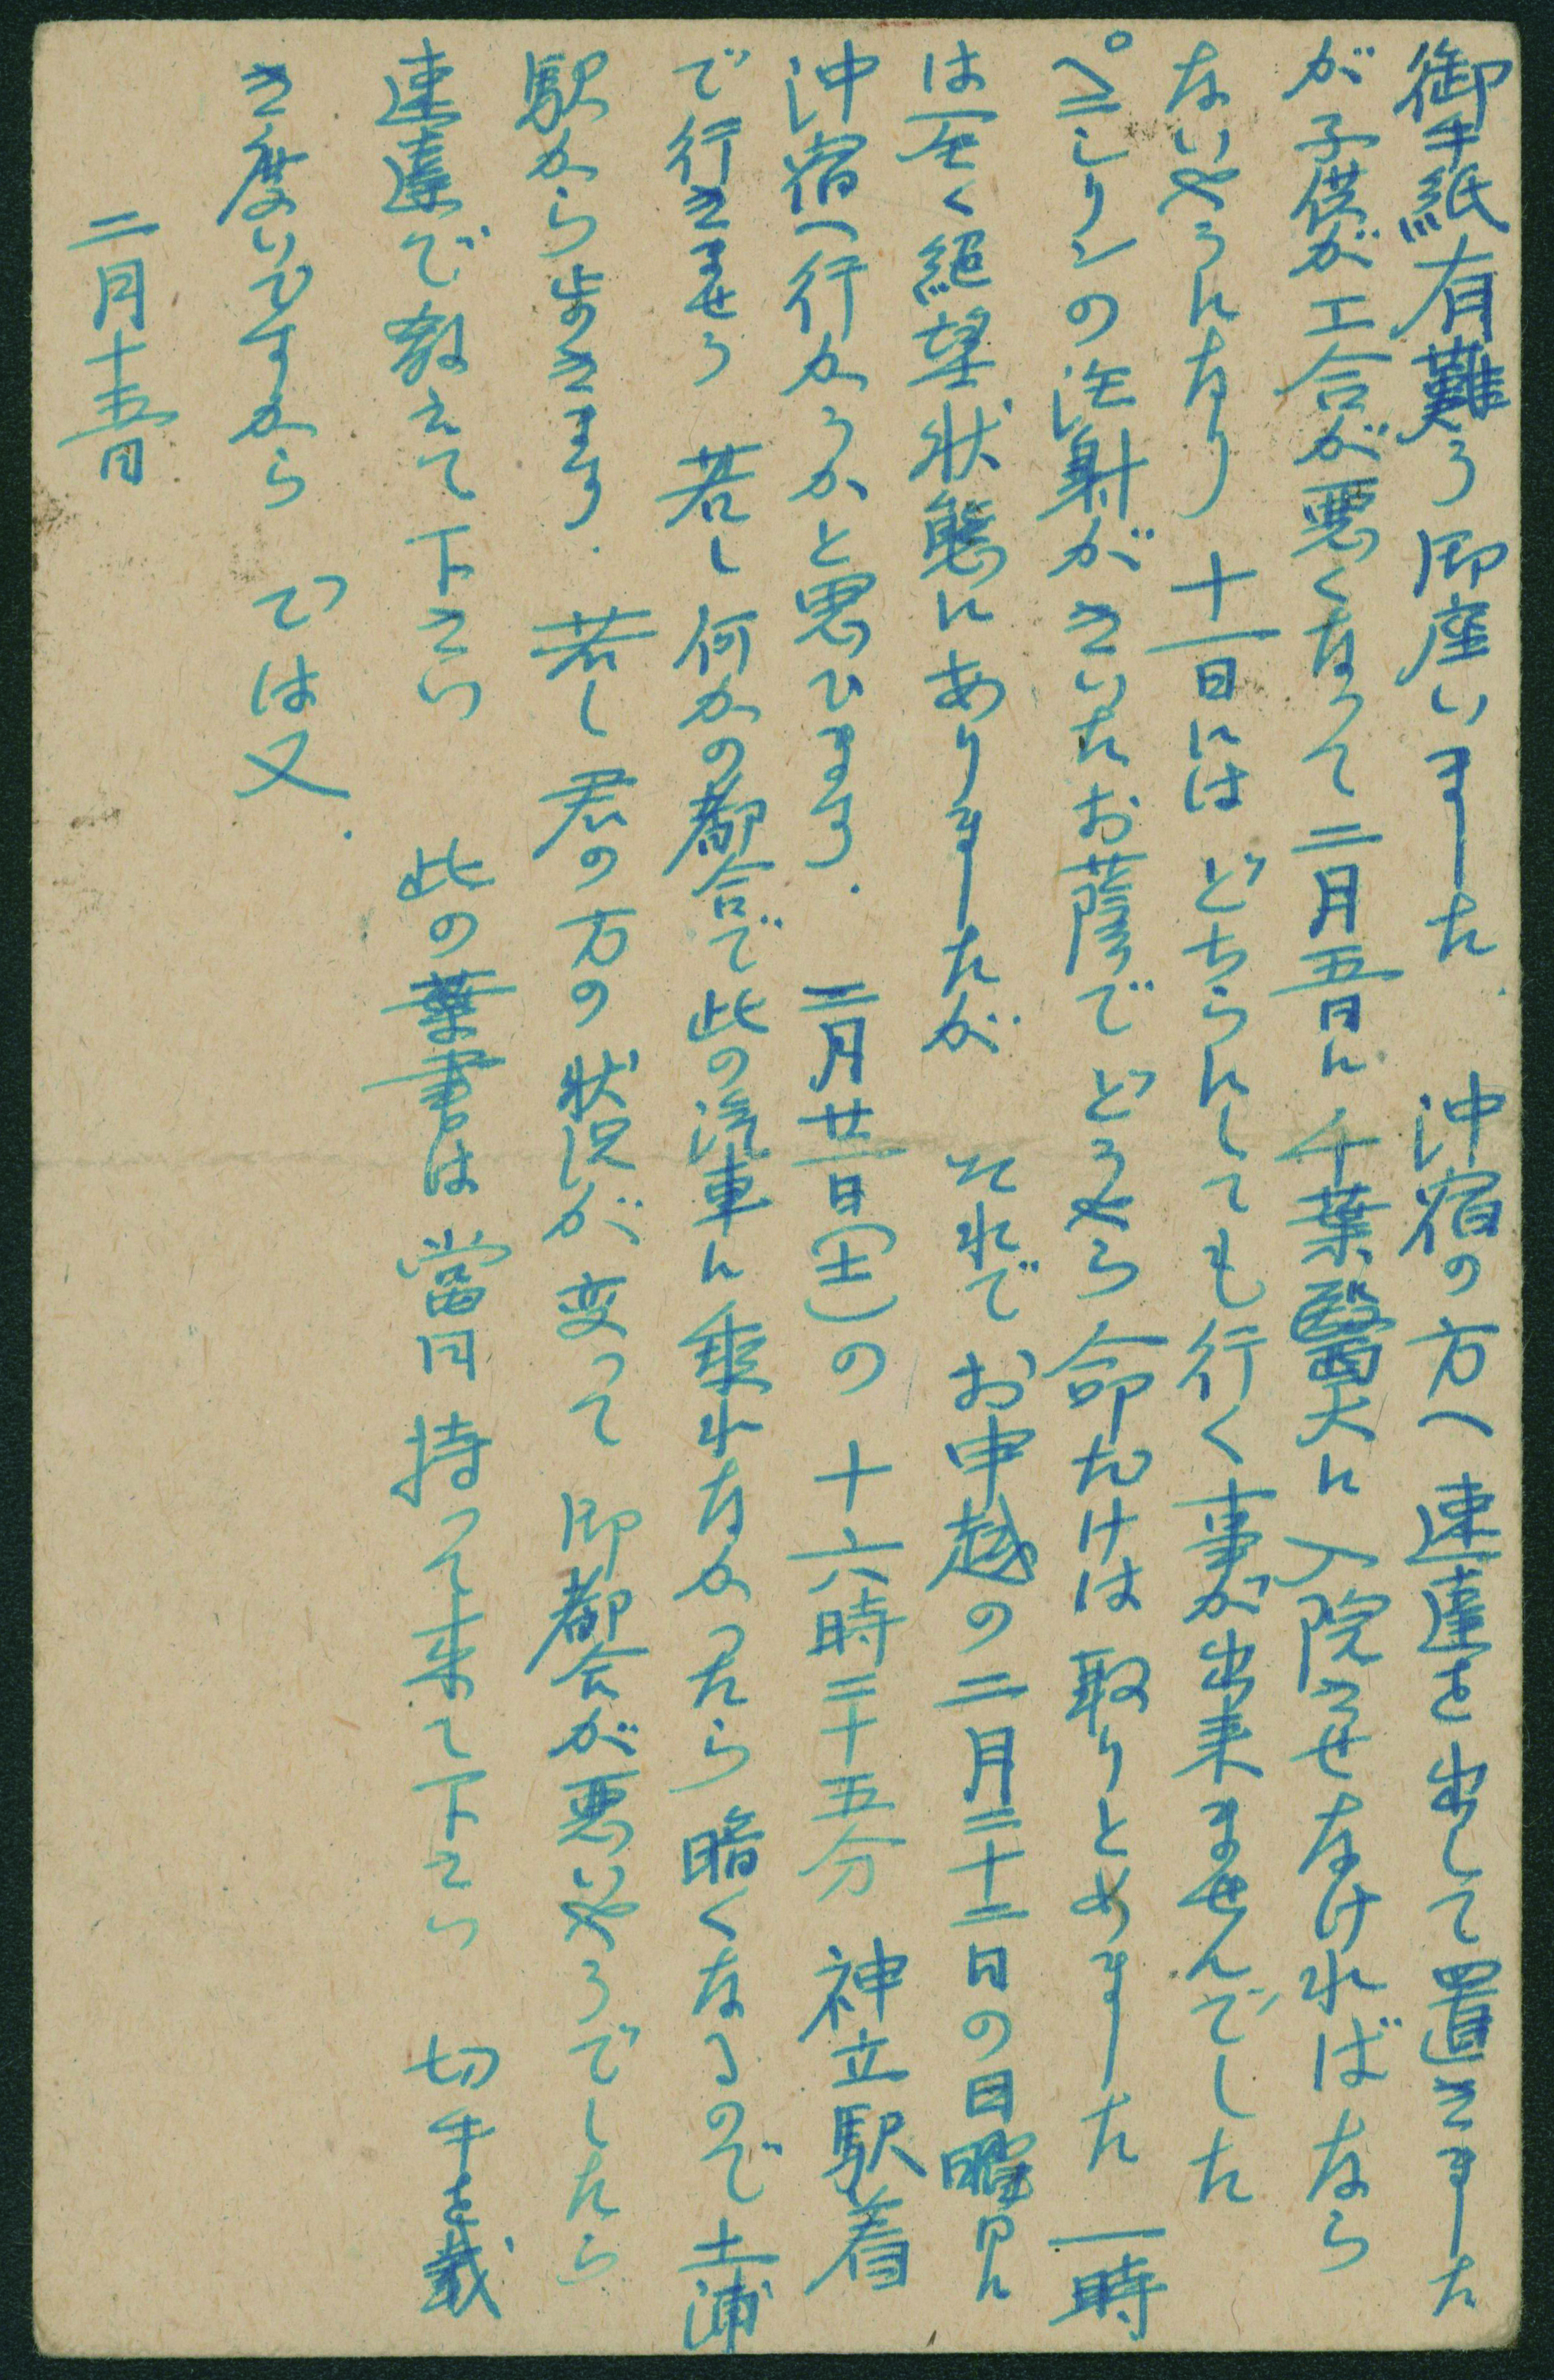 御手紙有難う御座いました. 沖宿の方へ速達を出して置きました
が子供が工合が悪くなって二月五日に千葉醫大に入院させなければなら
ないやうになり 十一日にはどちらにしても行く事が出来ませんでした
ペニシリンの注射がきいたお蔭でどうやら命だけは取りとめました 一時
は全く絕望状態にありましたが それでお申越の二月二十二日の日曜日に
沖宿へ行かうかと思ひます. 二月廿一日(土)の十六時二十五分 神立駅着
で行きませう 若し何かの都合で此の汽車に乘れなかったら暗くなるので土浦
駅から歩きます. 若し君の方の状況が変って御都合が悪いやうでしたら
速達で教えて下さい 此の葉書は當日持って来て下さい 切手を戴
き度いですから では又.
二月十五日